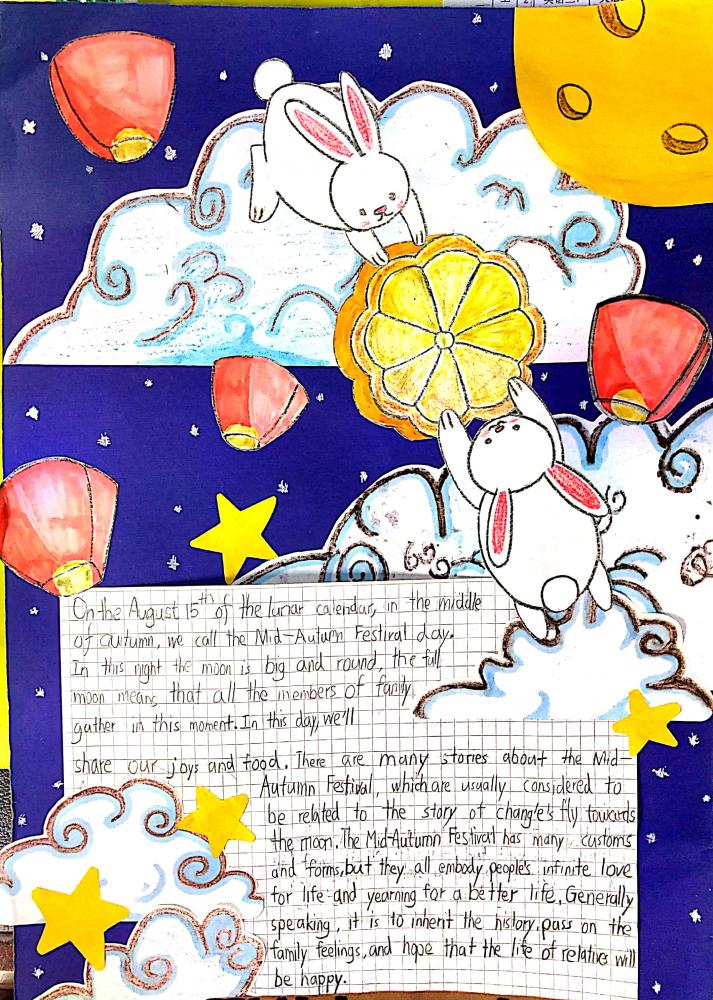 On the August 15th of the lunar calendar, in the middle
of autumn, we call the Mid-Autumn Festival day.
In this night the moon is big and round, the full
moon means that all the members of family
gather in this moment. In this day, we'll
share our joys and food. There are many stories about the Mid-
Autumn Festival, which are usually considered to
be related to the story of chang'e's fly towards
the moon. The Mid-Autumn Festival has many customs
and forms, but they all embody people's infinite love
for life and yearning for a better life, Generally
speaking, it is to inherit the history, pass on the
family feelings, and hope that the life of relatives will
be happy.